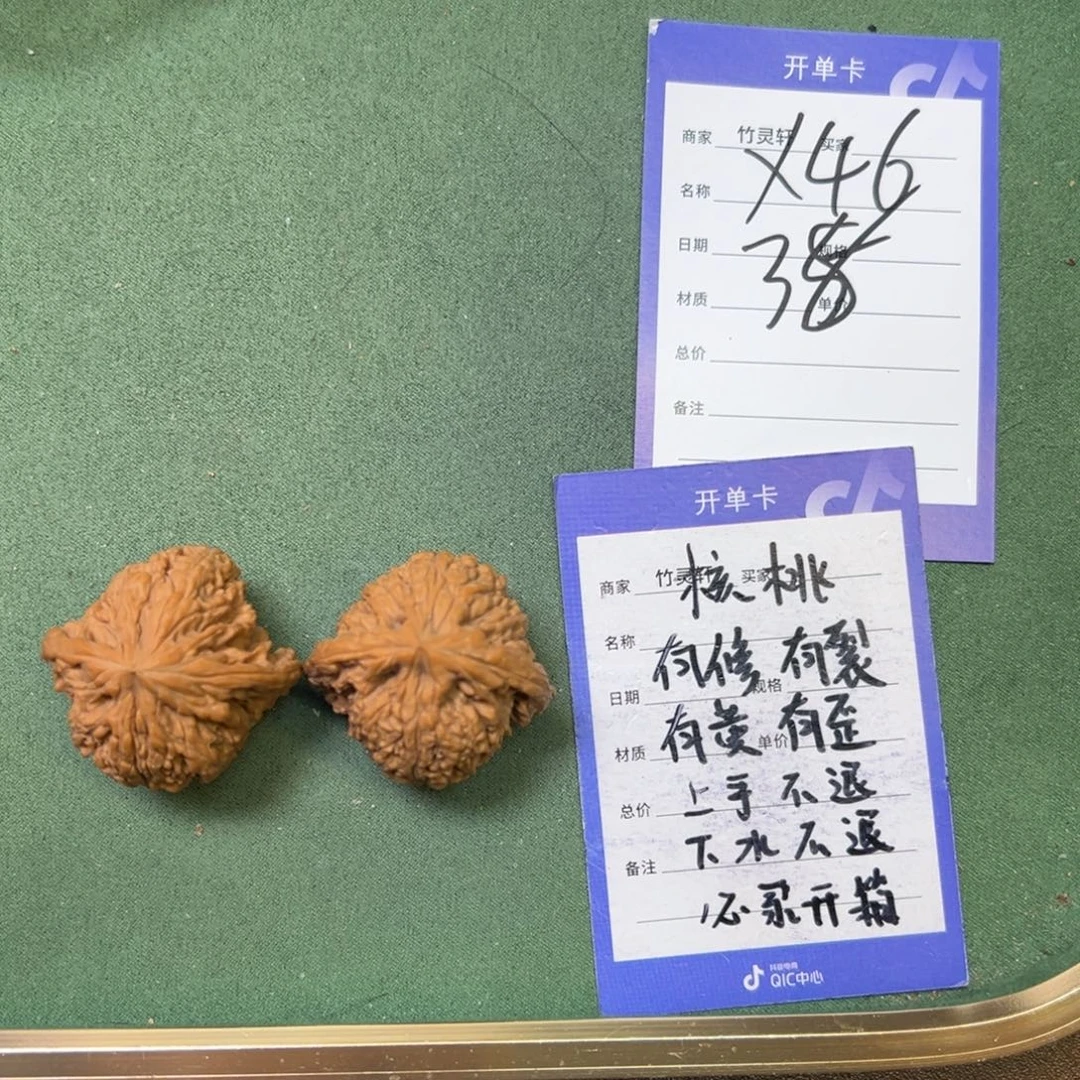 开单卡
商家 竹灵轩 买家
X46
名称
日期 规格
38
材质 单价
总价
备注
开单卡
商家 竹灵轩 买家
核桃
名称
有修 有裂
日期 规格
有黄 有歪
材质 单价
上手不退
总价
下水不退
备注
必录开箱
抖音电商
QIC中心